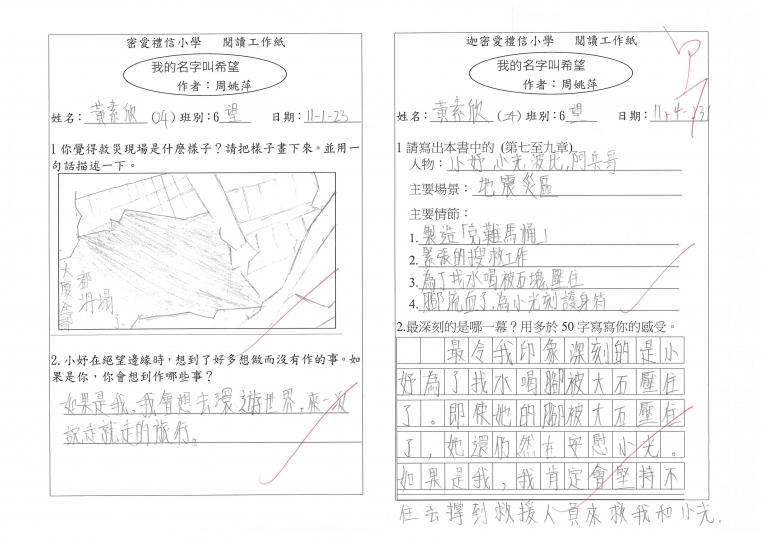 密愛禮信小學 閱讀工作紙
我的名字叫希望
作者：周姚萍
姓名：黃素欣 (24) 班別：6 望 日期：11-1-23
1 你覺得救災現場是什麼樣子？請把樣子畫下來。並用一
句話描述一下。
大廈全部都坍塌了。
2. 小妤在絕望邊緣時，想到了好多想做而沒有作的事。如
果是你，你會想到作哪些事？
如果是我，我會想去環遊世界，來一次
說走就走的旅行。
迦密愛禮信小學 閱讀工作紙
我的名字叫希望
作者：周姚萍
姓名：黃素欣 (24) 班別：6 望 日期：
1 請寫出本書中的 (第七至九章)
人物：小妤,小光,波比,阿兵哥
主要場景：地震災區
主要情節：
1. 製造「克難馬桶」
2. 緊張的搜救工作
3. 為了找水喝被石塊壓住
4. 腳流血了,為小光刻護身符
2.最深刻的是哪一幕？用多於 50 字寫寫你的感受。
最令我印象深刻的是小
妤為了找水喝腳被大石壓住
了。即使她的腳被大石壓住
了，她還仍然在安慰小光。
如果是我，我肯定會堅持不
住去撐到救援人員來救我和小光.